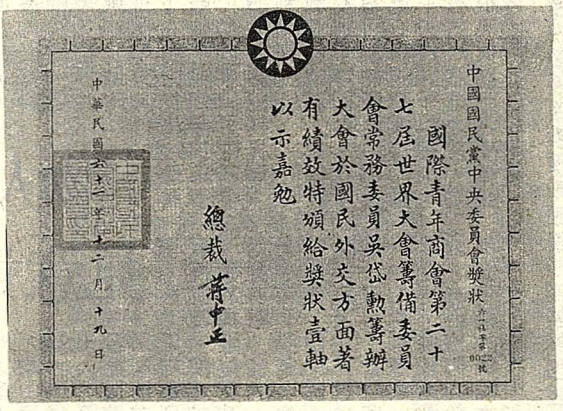 中國國民黨中央委員會獎狀
0022號
國際青年商會第二十
七屆世界大會籌備委員
會常務委員吳岱勳籌辦
大會於國民外交方面著
有績效特頒給獎狀壹軸
以示嘉勉
總裁 蔣中正
中華民國六十一年十二月十九日